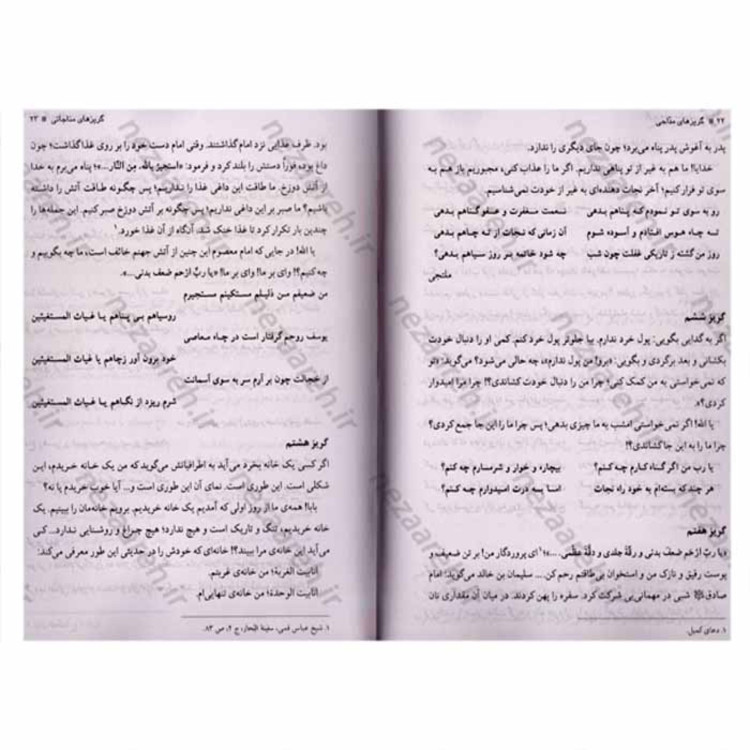 ۲۲ ■ گریزهای مناجاتی
پدر به آغوش پدر پناه می‌برد؛ چون جای دیگری را ندارد.
خدایا! ما هم به غیر از تو پناهی نداریم. اگر ما را عذاب کنی، مجبوریم باز هم به
سوی تو فرار کنیم؛ آخر نجات دهنده‌ای به غیر از خودت نمی‌شناسیم.
رو به سوی تو نمودم که پناهم بدهی نعمت مغفرت و عفو گناهم بدهی
ته چاه هوس افتادم و آسوده شوم آن زمانی که نجات از ته چاهم بدهی
روز من گشته ز تاریکی غفلت چون شب چه شود خاتمه بر روز سیاهم بدهی؟
ملتجی
گریز ششم
اگر به گدایی بگویی: پول خرد ندارم. بیا جلوتر پول خرد کنم. کمی او را دنبال خودت
بکشانی و بعد برگردی و بگویی: «برو! من پول ندارم»، چه حالی می‌شود؟ می‌گوید: «تو
که نمی‌خواستی به من کمک کنی؛ چرا من را دنبال خودت کشاندی؟! چرا مرا امیدوار
کردی؟».
یا الله! اگر نمی‌خواستی امشب به ما چیزی بدهی؛ پس چرا ما را این جا جمع کردی؟
چرا ما را به این جا کشاندی؟!
یا رب من اگر گناه کارم چه کنم؟ بیچاره و خوار و شرمسارم چه کنم؟
هر چند که بسته‌ام به خود راه نجات اما به درت امیدوارم چه کنم؟
گریز هفتم
«یا ربِّ ارحَم ضَعفَ بَدَنی و رِقَّةَ جِلدی و دِقَّةَ عَظمی. ...»؛۱ ای پروردگار من! بر تن ضعیف و
پوست رقیق و نازک من و استخوان بی‌طاقتم رحم کن.... سلیمان بن خالد می‌گوید: امام
صادق شبی در مهمانی‌یی شرکت کرد. سفره را پهن کردند. در میان آن مقداری نان
۱. دعای کمیل.
گریزهای مناجاتی ■ ۲۳
بود. ظرف غذایی نزد امام گذاشتند. وقتی امام دست خود را بر روی غذا گذاشت؛ چون
داغ بود فوراً دستش را بلند کرد و فرمود: «اَستَجیرُ بِاللهِ مِنَ النّارِ...»؛ پناه می‌برم به خدا
از آتش دوزخ. ما طاقت این داغی غذا را نداریم؛ پس چگونه طاقت آتش را داشته
باشیم؟ ما صبر بر این داغی نداریم؛ پس چگونه بر آتش دوزخ صبر کنیم. این جمله‌ها را
چندین بار تکرار کرد تا غذا خنک شد. آنگاه از آن غذا خورد.۱
یا الله! در جایی که امام معصوم این چنین از آتش جهنم خائف است، ما چه بگوییم و
چه کنیم؟! وای بر ما! وای بر ما! «یا ربِّ ارحَم ضعفَ بدنی...».
من ضعیفم من ذلیلم مستکینم مستجیرم
روسیاهم بی پناهم یا غیاث المستغیثین
یوسف روحم گرفتار است در چاه معاصی
خود برون آور زچاهم یا غیاث المستغیثین
از خجالت چون بر آرم سر به سوی آسمانت
شرم ریزد از نگاهم یا غیاث المستغیثین
گریز هشتم
اگر کسی یک خانه بخرد می‌آید به اطرافیانش می‌گوید که من یک خانه خریدم، این
شکلی است. این طوری است. نمای آن این طوری است و... آیا خوب خریدم یا نه؟
بابا! همه‌ی ما از روز اولی که آمدیم یک خانه خریدیم. برویم خانه‌مان را ببینیم. یک
خانه خریدیم، تنگ و تاریک است و هیچ ندارد؛ هیچ چراغ و روشنایی ندارد... کی
می‌آید این خانه‌ی مرا ببیند؟! خانه‌ای که خودش را در حدیثی این طور معرفی می‌کند:
اَنَا بَیتُ الغُربَةِ؛ من خانه‌ی غربتم.
اَنَا بَیتُ الوَحدَةِ؛ من خانه‌ی تنهایی‌ام.
۱. شیخ عباس قمی، سفینة البحار، ج ۲، ص ۸۳.
nezaareh.ir